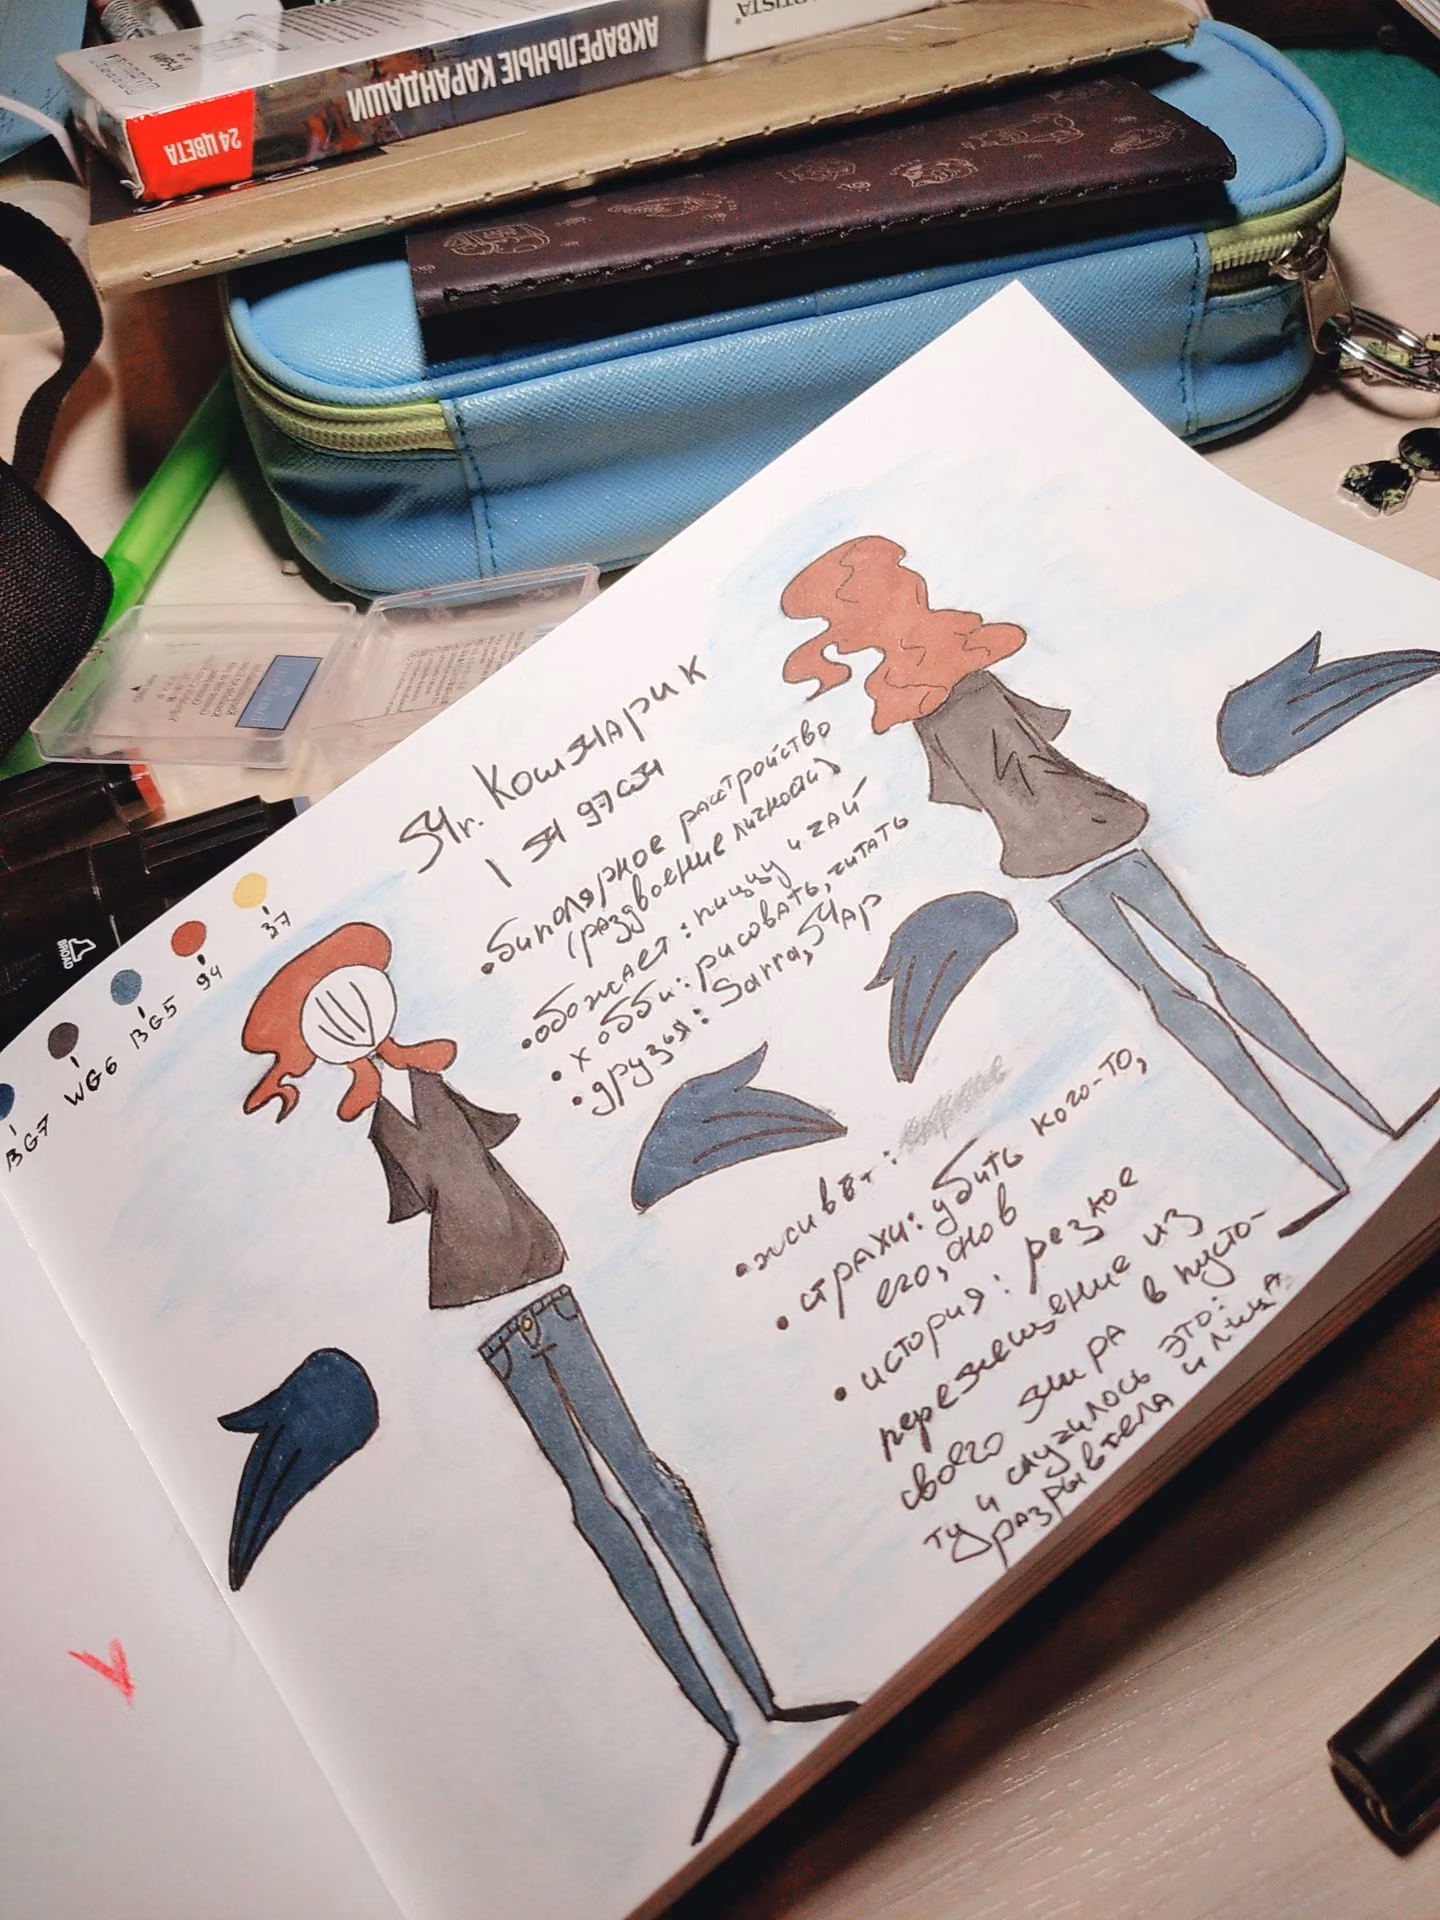 ARTISTA®
АКВАРЕЛЬНЫЕ КАРАНДАШИ
24 ЦВЕТА
BROAD
BG7
WG6
BG5
94
37
Мг. Кошмарик
1 м 97 см
• биполярное расстройство
(раздвоение личности)
• обожает: пиццу и чай
• хобби: рисовать, читать
• друзья: Sarra, Мар
• живёт:
• страхи: убить кого-то,
его, снов
• история: резкое
перемещение из
своего мира в пусто-
ту и случилось это:
разрыв тела и лица